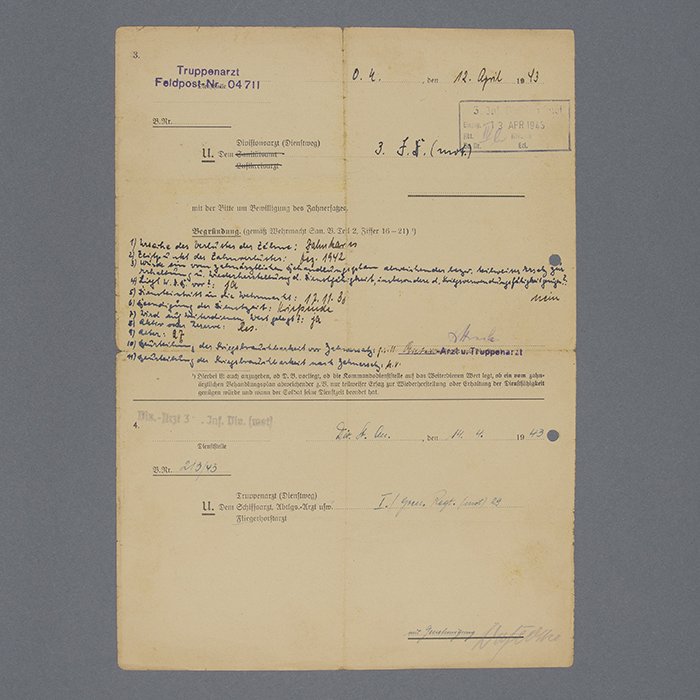 3.
Truppenarzt
Feldpost-Nr. 04711
O. U. , den 12. April 1943
B.Nr.
3. Inf.
Eing. 13 APR 1943
Divisionsarzt (Dienstweg)
U. Dem Sanitätsamt
Luftflottenarzt
3. I.D. (mot.)
mit der Bitte um Bewilligung des Zahnersatzes.
Begründung. (gemäß Wehrmacht San. V. Teil 2, Ziffer 16–21) ¹)
1) Ursache des Verlustes der Zähne: Zahnkaries
2) Zeitpunkt des Zahnverlustes: 1942
3) Würde ein vom zahnärztlichen Behandlungsplan abweichender bezw. teilweiser Ersatz zur
Erhaltung u. Wiederherstellung d. Dienstfähigkeit, insbesondere d. Kriegsverwendungsfähigkeit genügen?
nein
4) Liegt D.B. vor?: ja
5) Diensteintritt in die Wehrmacht: 17.11.38
6) Beendigung der Dienstzeit: Kriegsende
7) Wird auf Weiterdienen Wert gelegt?: ja
8) Aktiv oder Reserve: Res.
9) Alter: 27
10) Beurteilung der Kriegsbrauchbarkeit vor Zahnersatz:
Arzt u. Truppenarzt
11) Beurteilung der Kriegsbrauchbarkeit nach Zahnersatz:
¹) Hierbei ist auch anzugeben, ob D.B. vorliegt, ob die Kommandodienststelle auf das Weiterdienen Wert legt, ob ein vom zahn-
ärztlichen Behandlungsplan abweichender z.B. nur teilweiser Ersatz zur Wiederherstellung oder Erhaltung der Dienstfähigkeit
genügen würde und wann der Soldat seine Dienstzeit beendet hat.
4.
Div.-Arzt 3. Inf. Div. (mot)
Dienststelle
Div. St. Qu. , den 14. 4. 1943
B.Nr. 213/43
Truppenarzt (Dienstweg)
U. Dem Schiffsarzt, Abtlgs.-Arzt usw.
Fliegerhorstarzt
I./ Gren. Regt. (mot) 29
mit Genehmigung